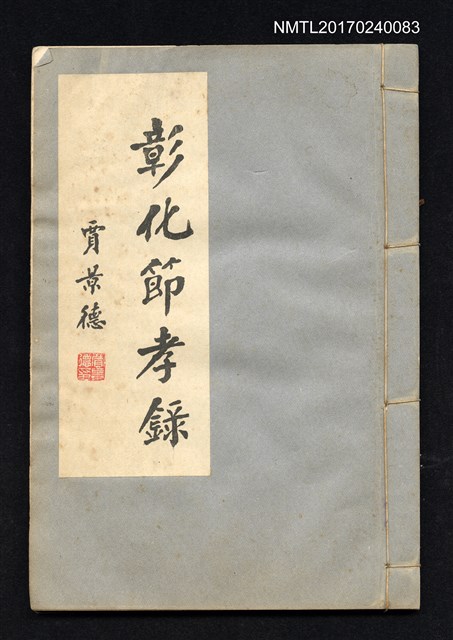 NMTL20170240083
彰化節孝錄
賈景德